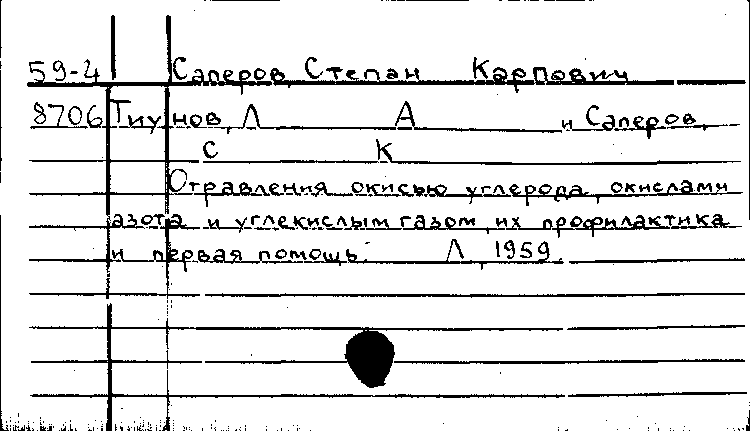 59-4 Саперов, Степан Карпович
8706 Тиунов, Л А и Саперов,
С К
Отравления окисью углерода, окислами
азота и углекислым газом, их профилактика
и первая помощь. Л, 1959.